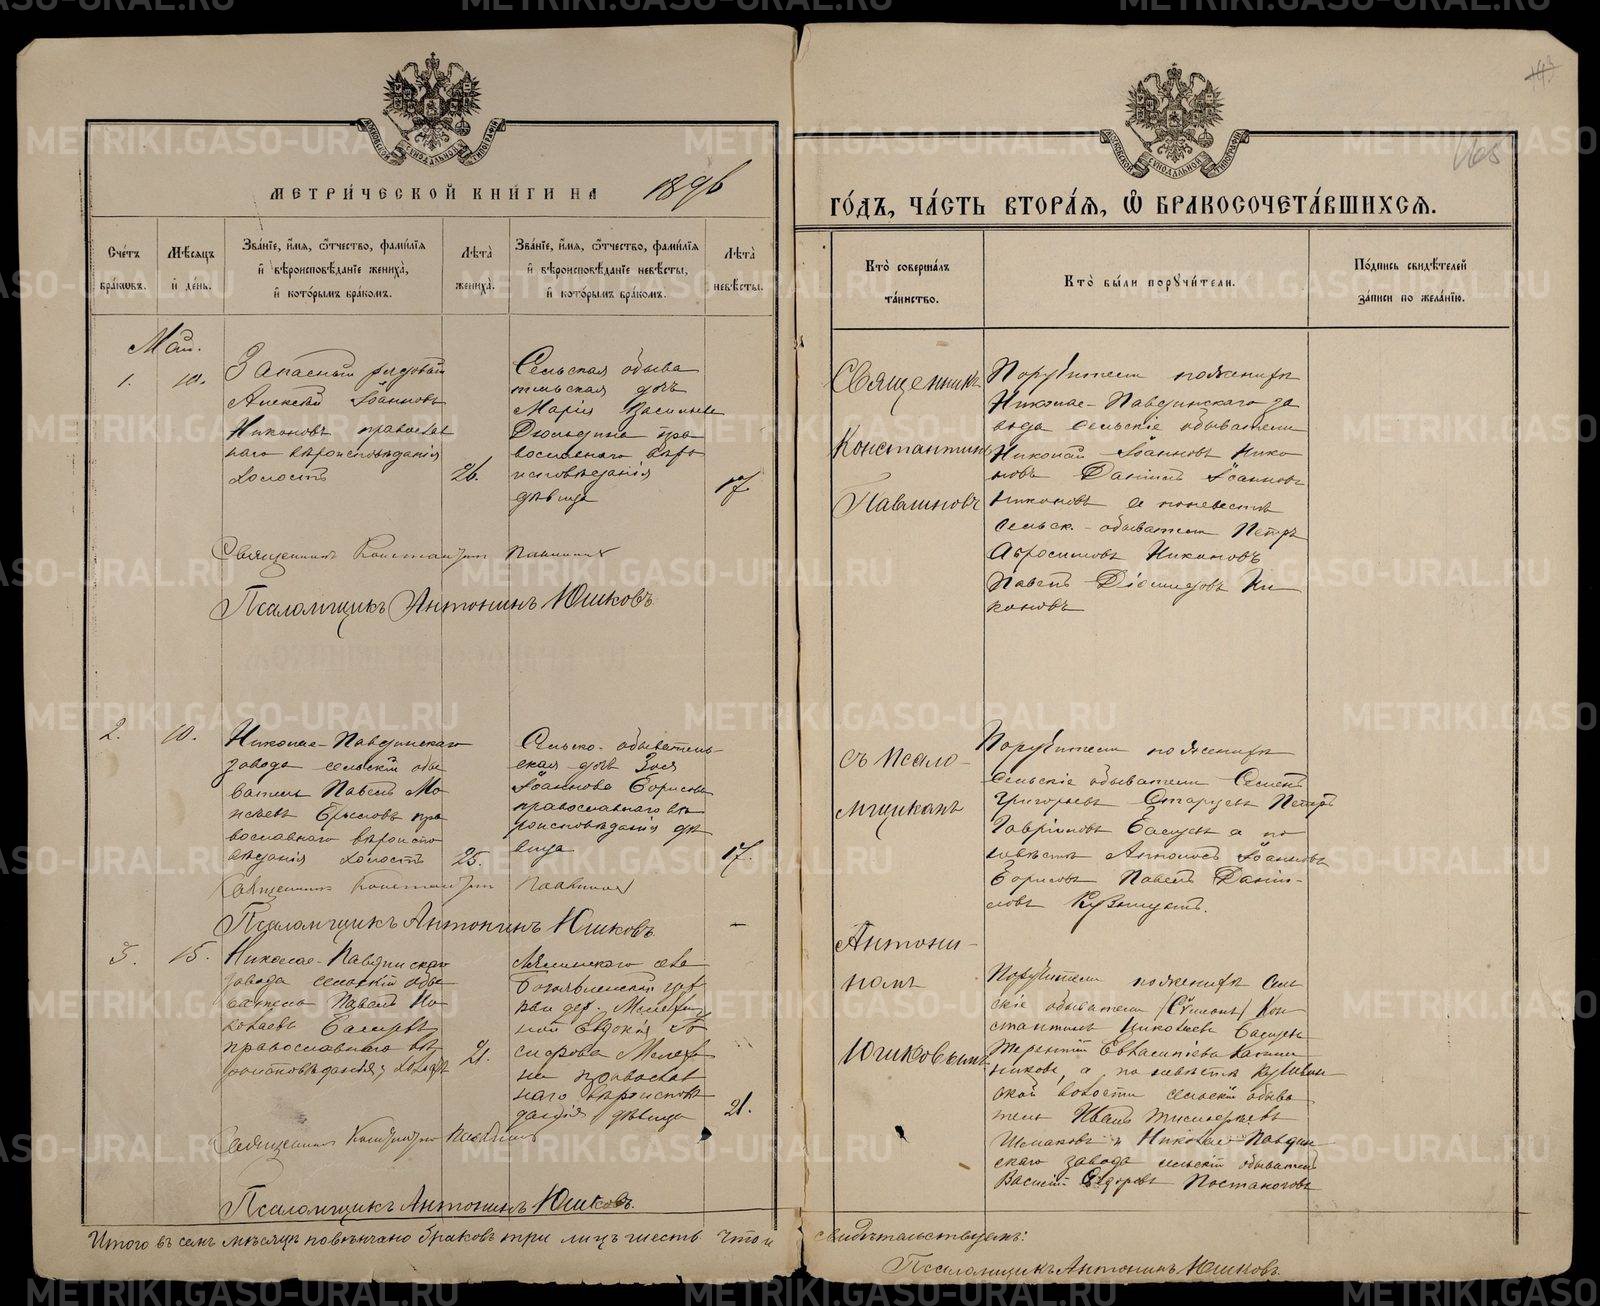 МЕТРИ́ЧЕСКОЙ КНИ́ГИ НА 1896
ГО́ДЪ, ЧА́СТЬ ВТОРА́Я, Ѽ БРАКОСОЧЕТА́ВШИХСЯ.
Сче́тъ бра́ковъ.
Мѣ́сяцъ и̂ де́нь.
Зва́нїе, и̂́мя, ѻ҆́тчество, фами́лїя
и̂ вѣроисповѣ́данїе жениха̀,
и̂ кото́рымъ бра́комъ.
Лѣ́та жениха̀.
Зва́нїе, и̂́мя, ѻ҆́тчество, фами́лїя
и̂ вѣроисповѣ́данїе невѣ́сты,
и̂ кото́рымъ бра́комъ.
Лѣ́та невѣ́сты.
Кто̀ соверша́лъ
та́инство.
Кто̀ бы́ли поручи́тели.
По́дпись свидѣ́телей
за́писи по жела́нїю.
Май.
1.
10.
Запасный рядовой
Алексѣй Іоанновъ
Никоновъ православ
наго вѣроисповѣданія
холостъ
26.
Сельская обыва
тельская дочь
Марія Васильева
Дюльдина пра
вославнаго вѣро
исповѣданія
дѣвица
17.
Священникъ
Константинъ
Павлиновъ
Поручители по женихѣ
Николае-Павдинскаго за
вода сельскіе обыватели
Николай Іоанновъ Нико
новъ Даніилъ Іоанновъ
Никоновъ а по невѣстѣ
сельск. обыватели Петръ
Абросимовъ Никоновъ
Павелъ Діомидовъ Ни
коновъ
Священникъ Константинъ Павлиновъ
Псаломщикъ Антонинъ Юшковъ.
2.
10.
Николае-Павдинскаго
завода сельскій обы
ватель Павелъ Мо
православнаго вѣроиспо
вѣданія холостъ
25.
Сельско-обыватель
ская дочь Зоя
Іоаннова Борисова
православнаго вѣ
роисповѣданія дѣ
вица
17.
съ псало-
мщикомъ
Поручители по женихѣ
сельскіе обыватели Семенъ
Григорьевъ Старцевъ Петръ
Гавріиловъ а по
невѣстѣ Іоанновъ
Борисовъ Павелъ Даніи-
ловъ
Священникъ Константинъ Павлиновъ
Псаломщикъ Антонинъ Юшковъ.
3.
15.
Николае-Павдинскаго
завода сельскій обы
ватель Павелъ Ни
колаевъ
православнаго вѣ
роисповѣданія, холостъ
21.
Лялинскаго села
Богоявленской цер
кви дер. Мелехи
ной Евдокія
Мелехи
на православ
наго вѣроисповѣ
данія дѣвица
21.
Антони-
номъ
Юшковымъ
Поручители по женихѣ сель
скіе обыватели Кон
стантинъ Николаевъ
Терентій
а по невѣстѣ
ской волости сельскій обыва
тель Иванъ
и Николае-Павдин
скаго завода сельскій обыватель
Василій Ѳедоровъ Постаноговъ
Священникъ Константинъ Павлиновъ
Псаломщикъ Антонинъ Юшковъ.
Итого въ семъ мѣсяцѣ повѣнчано браковъ три лицъ шесть что и свидѣтельствуемъ:
Псаломщикъ Антонинъ Юшковъ.
METRIKI.GASO-URAL.RU